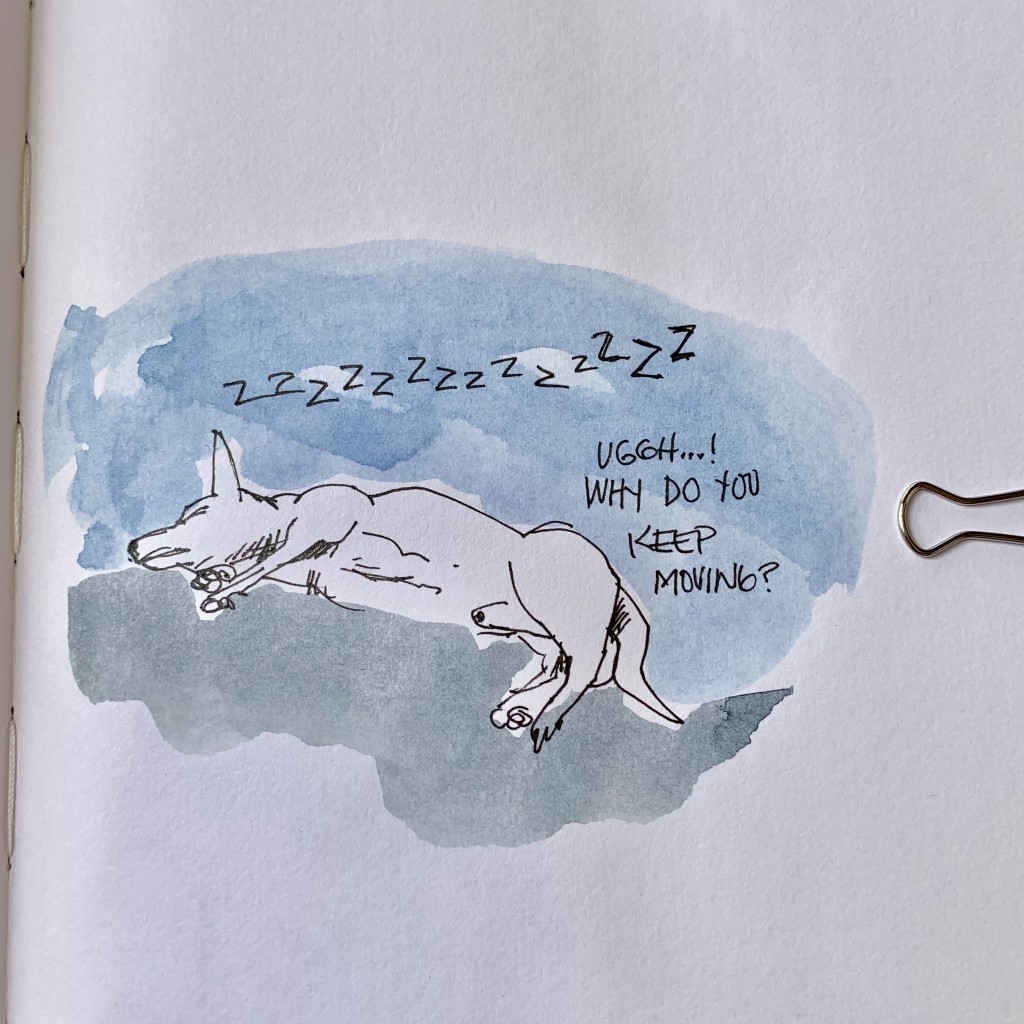 ZZZZZZZZZZZZZZ
UGGH...!
WHY DO YOU
KEEP
MOVING?